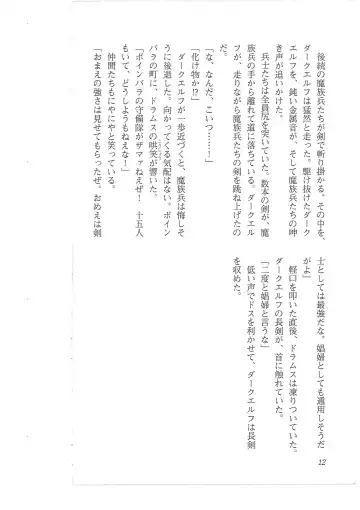 後続の魔族兵たちが剣で斬り掛かる。その中を、
ダークエルフは猛然と走った。駆け抜けたダーク
エルフを、鈍い金属音が、そして魔族兵たちの呻
き声が追いかけた。
兵士たちは全員尻を突いていた。数本の剣が、魔
族兵の手から離れて道に落ちている。ダークエル
フが、走りながら魔族兵たちの剣を跳ね上げたの
だ。
「な、なんだ、こいつ……！」
「化け物か!?」
ダークエルフが一歩近づくと、魔族兵は悔しそ
うに後退した。向かってくる気配はない。ボイン
バラの町に、ドラムスの哄笑が響いた。
「ボインバラの守備隊がザマァねえぜ！　十五人
もいて、どうしようもねえな！」
仲間たちもにやにやと笑っている。
「おまえの強さは見せてもらったぜ。おめえは剣
士としては最強だな。娼婦としても通用しそうだ
がよ」
軽口を叩いた直後、ドラムスは凍りついていた。
ダークエルフの長剣が、首に触れていた。
「二度と娼婦と言うな」
低い声でドスを利かせて、ダークエルフは長剣
を収めた。
12